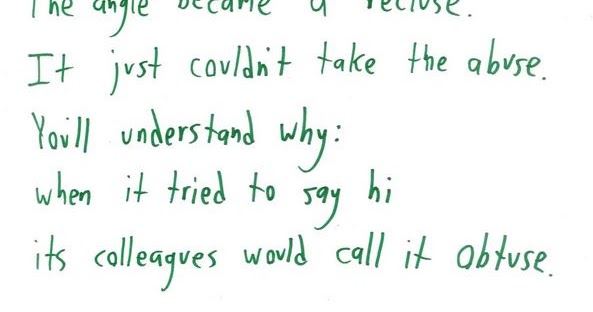 The angle became a recluse.
It just couldn't take the abuse.
You'll understand why:
when it tried to say hi
its colleagues would call it obtuse.